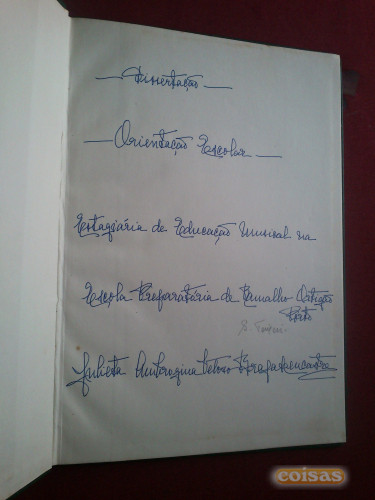 — Dissertação —
— Orientação Escolar —
Estagiária de Educação Musical na
Escola Preparatória de Ramalho Ortigão
Porto
Julieta Veloso Braga
coisas